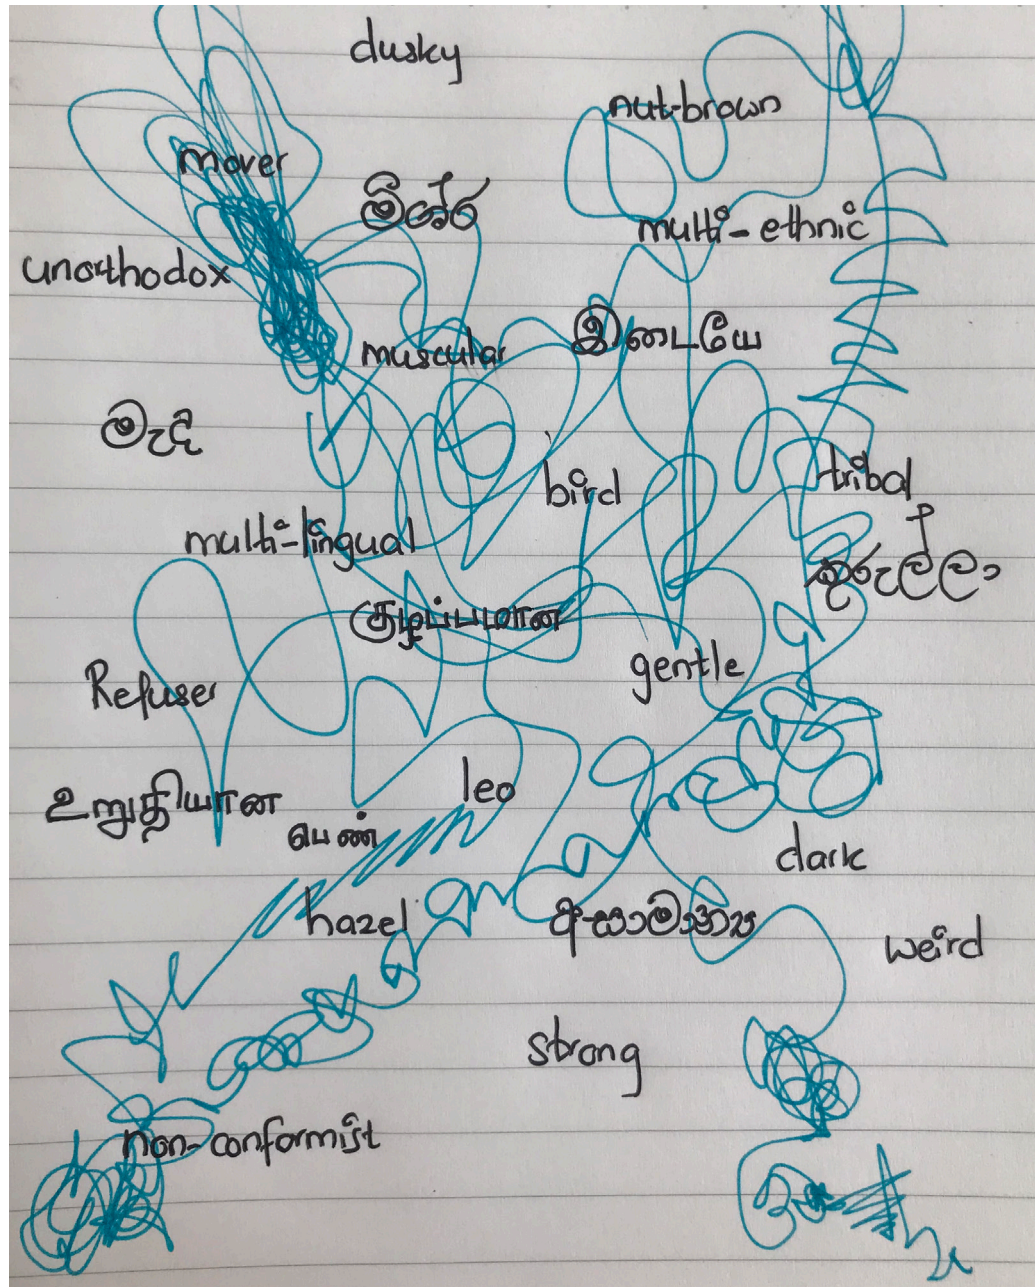 dusky
nut-brown
mover
මිශ්ර
multi-ethnic
unorthodox
இடையே
muscular
මැදි
tribal
bird
multi-lingual
කුරුල්ලා
குழப்பமான
gentle
Refuser
leo
உறுதியான
பெண்
dark
hazel
අසාමාන්‍ය
weird
strong
non-conformist